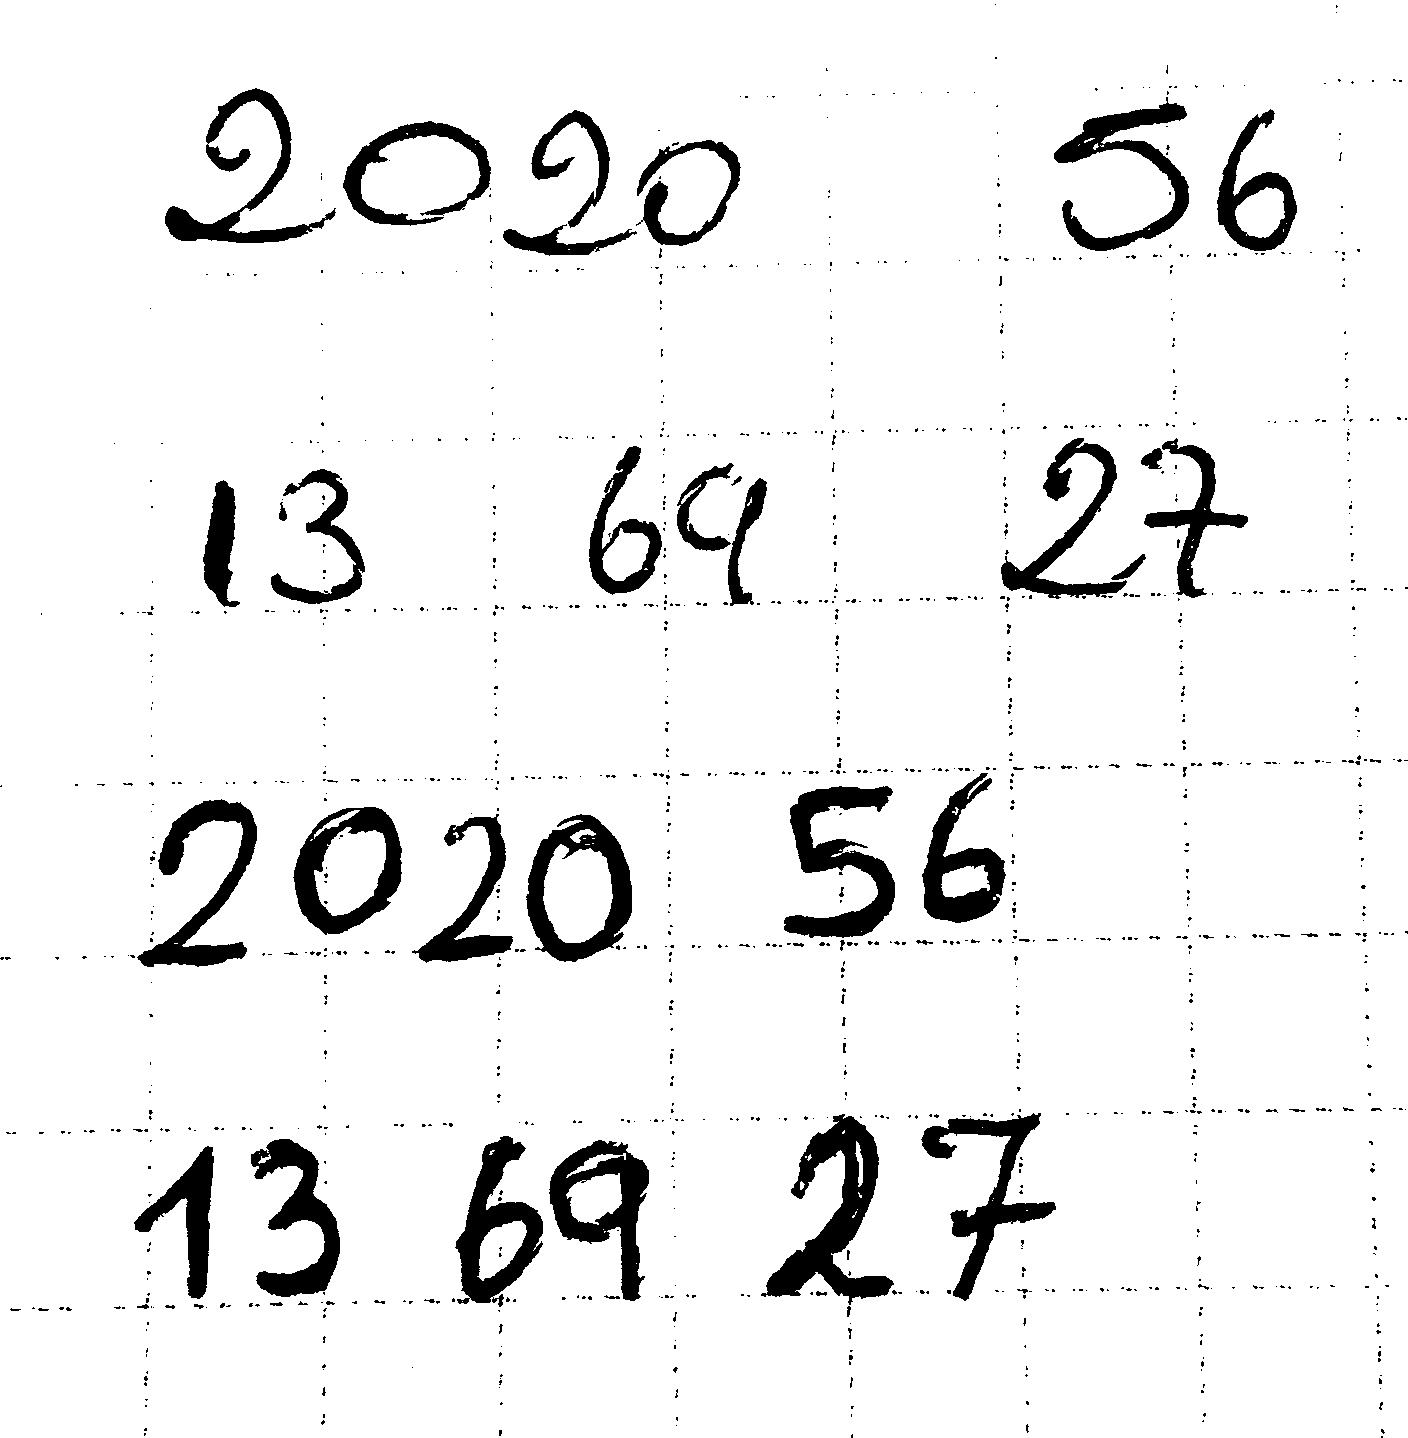 2020 56
13 69 27
2020 56
13 69 27